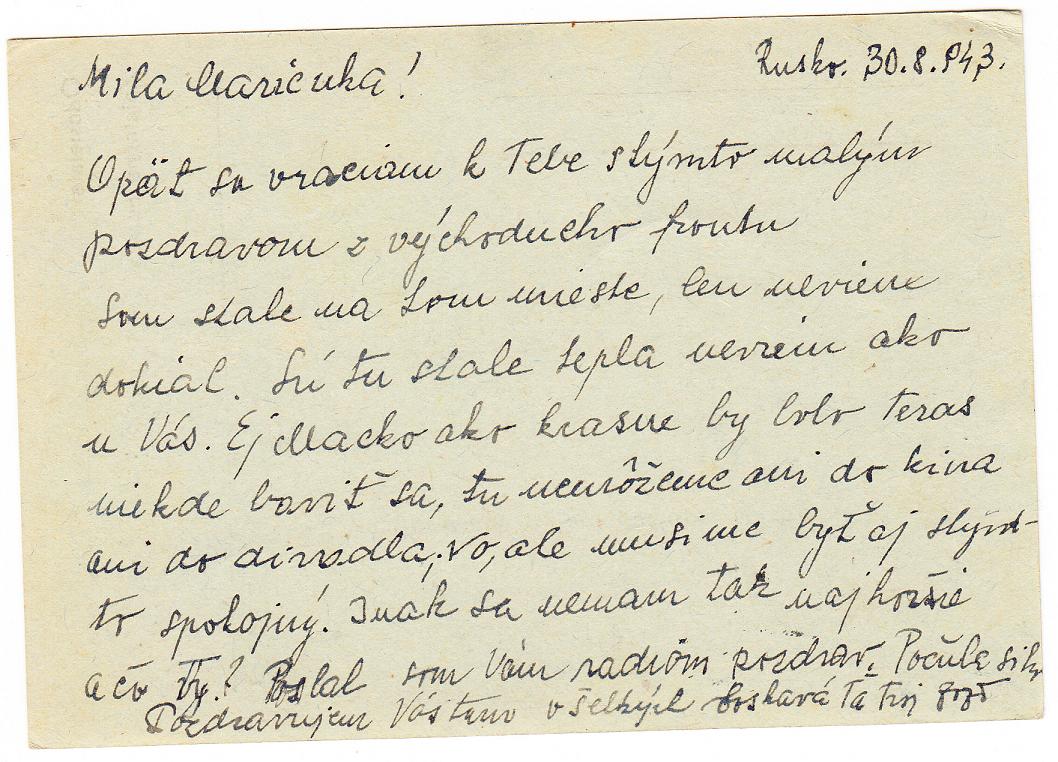 Mila Maričuka!
Rusko. 30.8.943.
Opäť sa vraciam k Tebe stýmto malým
pozdravom z východneho frontu
Som stale na tom mieste, len neviene
dokial. Sú tu stale tepla neviem ako
u Vás. Ej Macko ako krasne by bolo teras
niekde baviť sa, tu nemôžeme ani do kina
ani do divadla, no, ale musime byť aj stým-
to spokojný. Inak sa nemam tak najhoršie
a čo Ty? Poslal som Vám radiom pozdrav. Počula si ho
Pozdravujem Vás tam všelkých boskavá Ťa tvoj